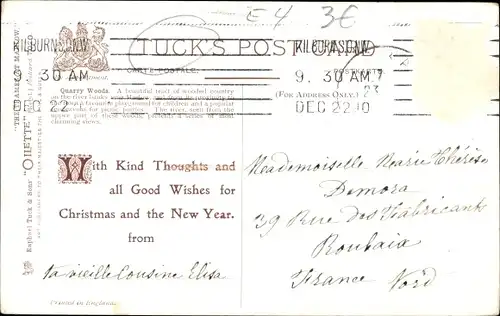 E 4 3€
KILBURN S.O.N.W KILBURN S.O.N.W
TUCK'S POST CARD
CARTE POSTALE
9. 30 AM 9. 30 AM
23
(FOR ADDRESS ONLY.)
DEC 22 DEC 22 10
Quarry Woods. A beautiful tract of wooded country
on the river banks near Marlow, and from its proximity to
a favourite playground for children and a popular
for picnic parties. The view, seen from the
upper part of these woods, presents a series of most
charming views.
Raphael Tuck & Sons' "OILETTE"
With Kind Thoughts and
all Good Wishes for
Christmas and the New Year.
from
ta vieille Cousine Elisa
Printed in England.
Mademoiselle Marie Thérèse
Demora
39 Rue des Fabricants
Roubaix
France Nord